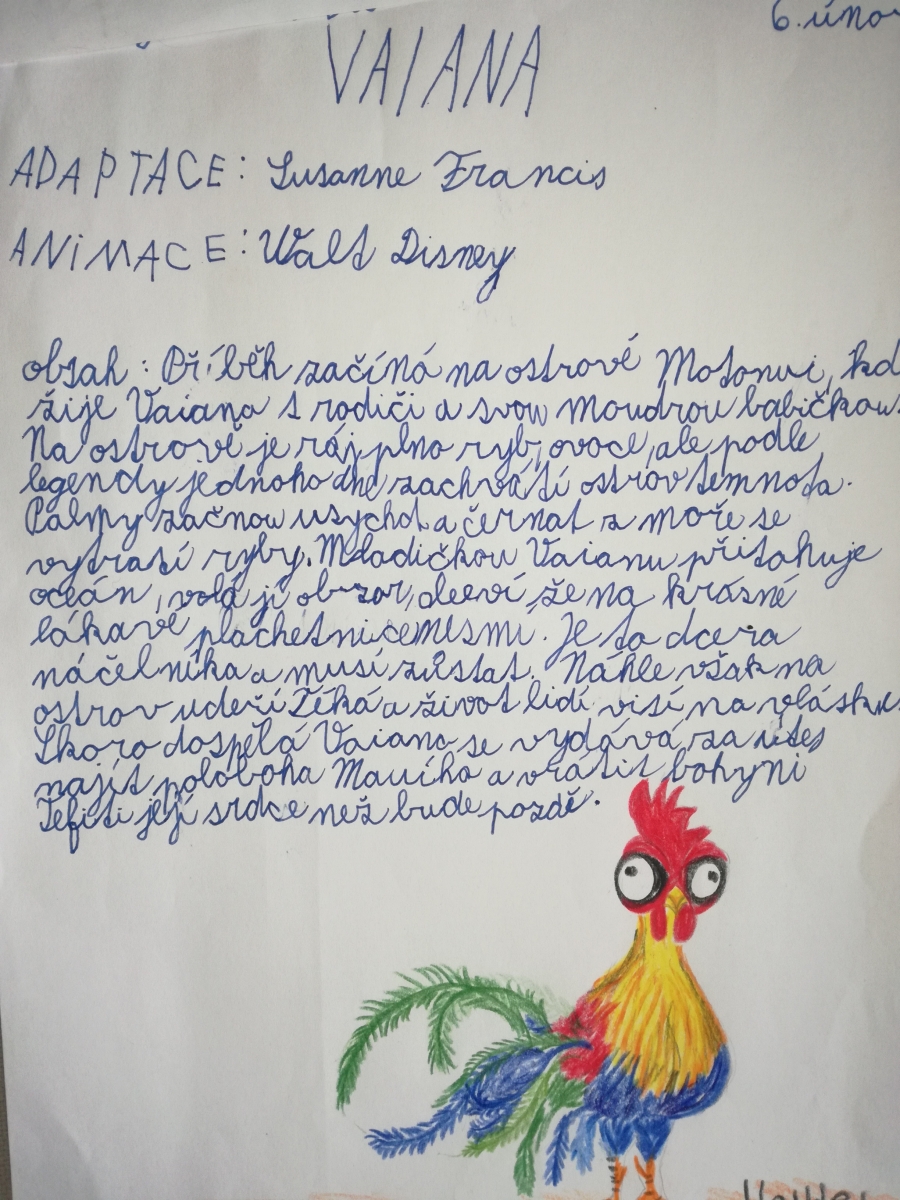 6. úno
VAIANA
ADAPTACE: Susanne Francis
ANIMACE: Walt Disney
obsah: Příběh začíná na ostrově Motonui, kd
žije Vaiana s rodiči a svou moudrou babičkou.
Na ostrově je ráj, plno ryb, ovoce, ale podle
legendy jednoho dne zachvátí ostrov temnota.
Palmy začnou usychat a černat z moře se
vytratí ryby. Mladičkou Vaianu přitahuje
oceán, volá ji obzor, že na krásné
lákavé plachetnice nesmí. Je to dcera
náčelníka a musí zůstat. Náhle však na
ostrov udeří Téká a život lidí visí na vlásku
Skoro dospělá Vaiana se vydává za útes
najít poloboha Mauiho a vrátit bohyni
Tefiti její srdce než bude pozdě.